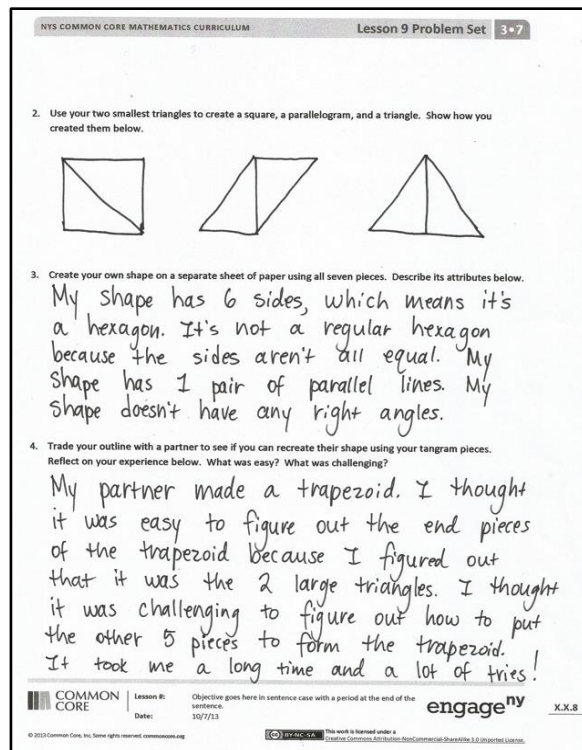 NYS COMMON CORE MATHEMATICS CURRICULUM
Lesson 9 Problem Set 3•7
2. Use your two smallest triangles to create a square, a parallelogram, and a triangle. Show how you
created them below.
3. Create your own shape on a separate sheet of paper using all seven pieces. Describe its attributes below.
My shape has 6 sides, which means it's
a hexagon. It's not a regular hexagon
because the sides aren't all equal. My
shape has 1 pair of parallel lines. My
shape doesn't have any right angles.
4. Trade your outline with a partner to see if you can recreate their shape using your tangram pieces.
Reflect on your experience below. What was easy? What was challenging?
My partner made a trapezoid. I thought
it was easy to figure out the end pieces
of the trapezoid because I figured out
that it was the 2 large triangles. I thought
it was challenging to figure out how to put
the other 5 pieces to form the trapezoid.
It took me a long time and a lot of tries!
COMMON
CORE
Lesson #:
Date:
Objective goes here in sentence case with a period at the end of the
sentence.
10/7/13
engage ny
X.X.8
© 2013 Common Core, Inc. Some rights reserved. commoncore.org
(cc) BY-NC-SA
This work is licensed under a
Creative Commons Attribution-NonCommercial-ShareAlike 3.0 Unported License.